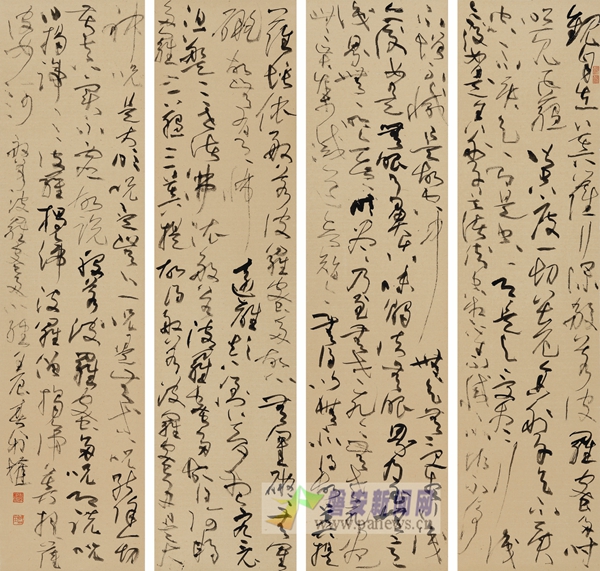 觀自在菩薩行深般若波羅蜜多時
照見五蘊皆空度一切苦厄舍利子色不異
空空不異色色即是空空即是色受想行識
亦復如是舍利子是諸法空相不生不滅不垢不淨
不增不減是故空中無色無受想行識
無眼耳鼻舌身意無色聲香味觸法無眼界乃至無意
識界無無明亦無無明盡乃至無老死亦無老死盡
無苦集滅道無智亦無得以無所得故菩提
薩埵依般若波羅蜜多故心無罣礙無罣
礙故無有恐怖遠離顛倒夢想究竟
涅槃三世諸佛依般若波羅蜜多故得阿耨
多羅三藐三菩提故知般若波羅蜜多是大
神咒是大明咒是無上咒是無等等咒能除一切
苦真實不虛故說般若波羅蜜多咒即說咒
曰揭諦揭諦波羅揭諦波羅僧揭諦菩提薩
婆訶 般若波羅蜜多心經 壬辰春
磐安新闻网
www.panews.cn